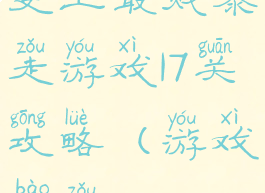 zǒu yóu xì guān
走游戏17关
gōng lüè yóu xì
攻略（游戏
bào zǒu